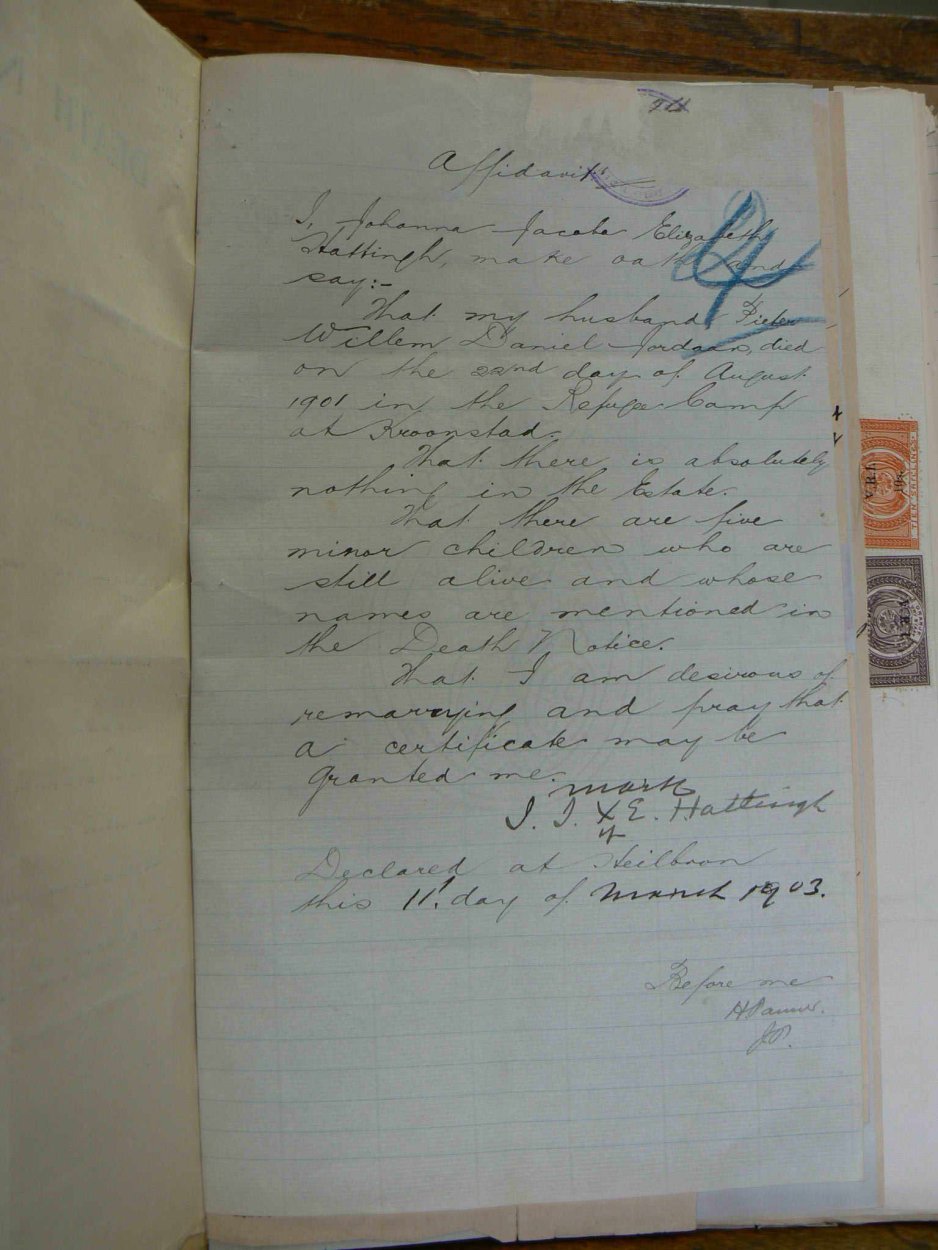 DEATH N
Affidavit
I, Johanna Jacoba Elizabeth
Hattingh, make oath and
say:-
That my husband Pieter
Willem Daniel Jordaan, died
on the 22nd day of August
1901 in the Refuge Camp
at Kroonstad.
That there is absolutely
nothing in the Estate.
That there are five
minor children who are
still alive and whose
names are mentioned in
the Death Notice.
That I am desirous of
remarrying and pray that
a certificate may be
granted me.
mark
J. J. X E. Hattingh
Declared at Heilbron
this 11th day of March 1903.
Before me
J.P.
V.R.I.
TIEN SHILLINGS
V.R.I.